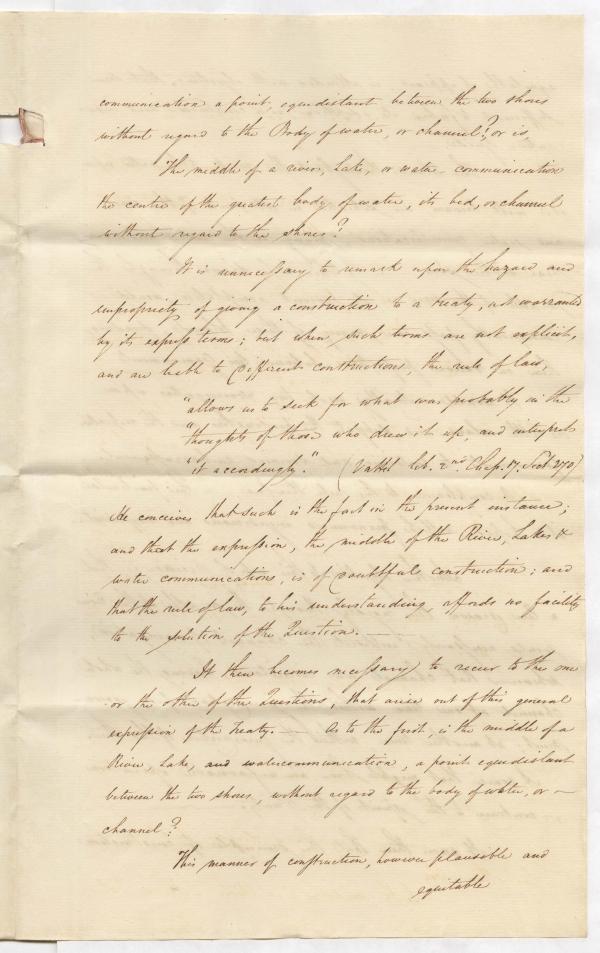 communication a point, equidistant between the two shores
without regard to the Body of water, or channel?, or is,
The middle of a river, Lake, or water-communication
the centre of the greatest body of water, its bed, or channel
without regard to the shores?
It is unnecessary to remark upon the hazard and
impropriety of giving a construction to a treaty, not warranted
by its express terms; but when such terms are not explicit,
and are liable to different constructions, the rule of law,
"allows us to seek for what was probably in the
"thoughts of those who drew it up, and interpret
"it accordingly." (Vattel lib. 2nd Chap. 17. Sect 270)
He conceives that such is the fact in the present instance;
and that the expression, the middle of the River, Lakes &
water communications, is of doubtful construction; and
that the rule of law, to his understanding, affords no facility
to the solution of the Question. —
It then becomes necessary to recur to the one
or the other of the Questions, that arise out of this general
expression of the Treaty. — As to the first, is the middle of a
River, Lake, and watercommunication, a point equidistant
between the two shores, without regard to the body of water, or —
channel?
This manner of construction, however plausible and
equitable